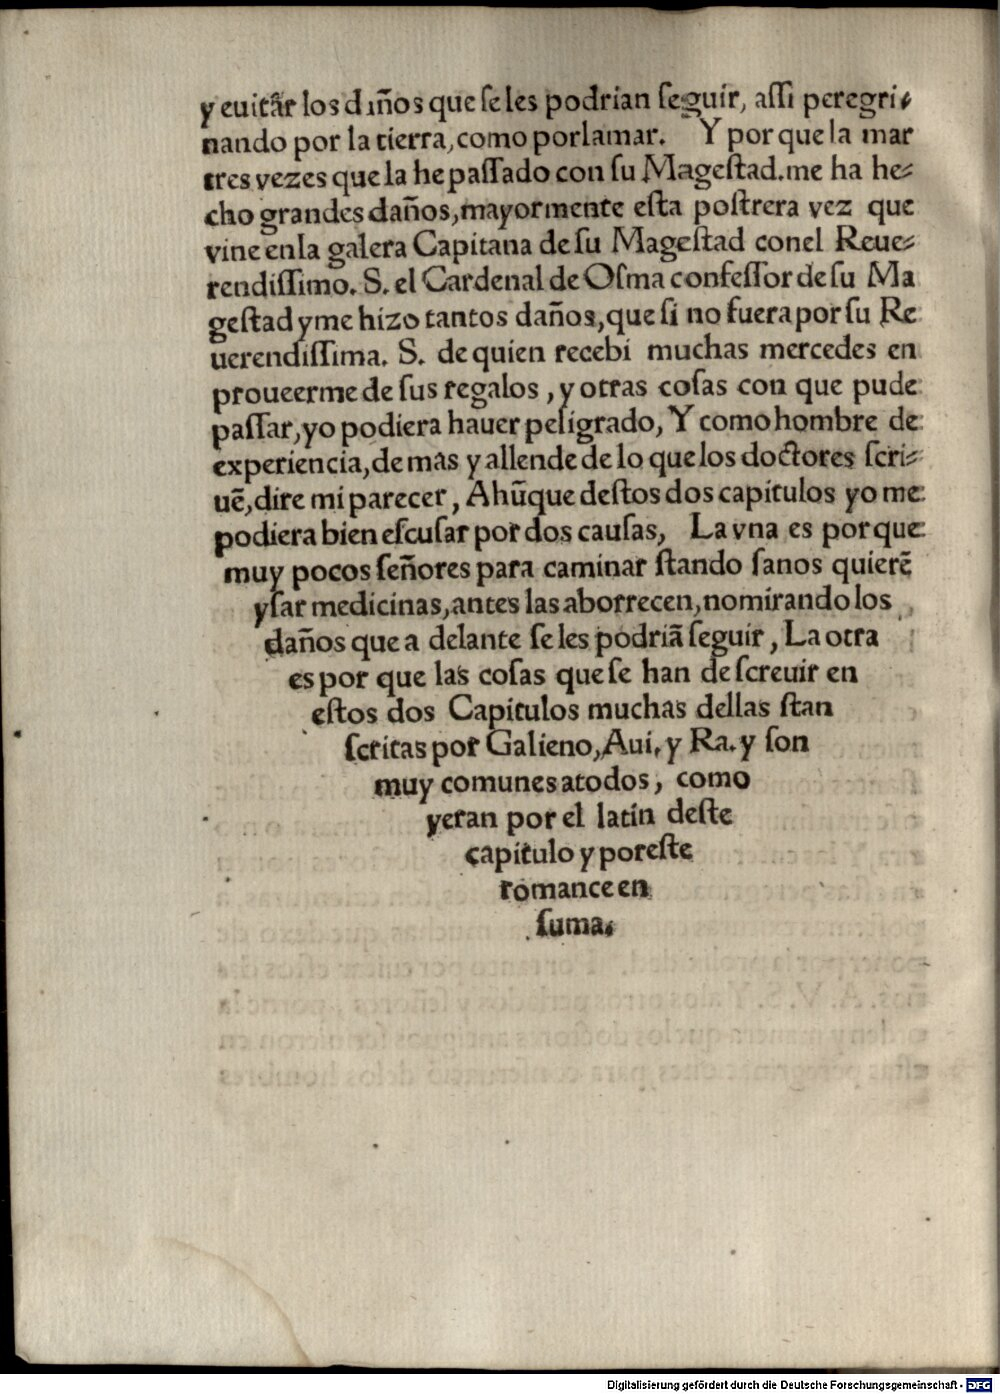 y euitar los dıños que ſe les podrian ſeguir, aſſi peregri-
nando por la tierra, como por la mar. Y por que la mar
tres vezes que la he paſſado con ſu Mageſtad. me ha he-
cho grandes daños, mayormente eſta poſtrera vez que
vine en la galera Capitana de ſu Mageſtad con el Reue-
rendiſſimo. S. el Cardenal de Oſma confeſſor de ſu Ma
geſtad y me hizo tantos daños, que ſi no fuera por ſu Re
uerendiſſima. S. de quien recebi muchas mercedes en
proueerme de ſus regalos, y otras coſas con que pude
paſſar, yo podiera hauer peligrado, Y como hombre de
experiencia, de mas y allende de lo que los doctores ſcri-
uē, dire mi parecer, Ahūque deſtos dos capitulos yo me
podiera bien eſcuſar por dos cauſas, La vna es por que
muy pocos ſeñores para caminar ſtando ſanos quierē
yſar medicinas, antes las aborrecen, no mirando los
daños que a delante ſe les podriā ſeguir, La otra
es por que las coſas que ſe han de ſcreuir en
eſtos dos Capitulos muchas dellas ſtan
ſcritas por Galieno, Aui, y Ra. y ſon
muy comunes a todos, como
yeran por el latin deſte
capitulo y por eſte
romance en
ſuma.
Digitalisierung gefördert durch die Deutsche Forschungsgemeinschaft - DFG